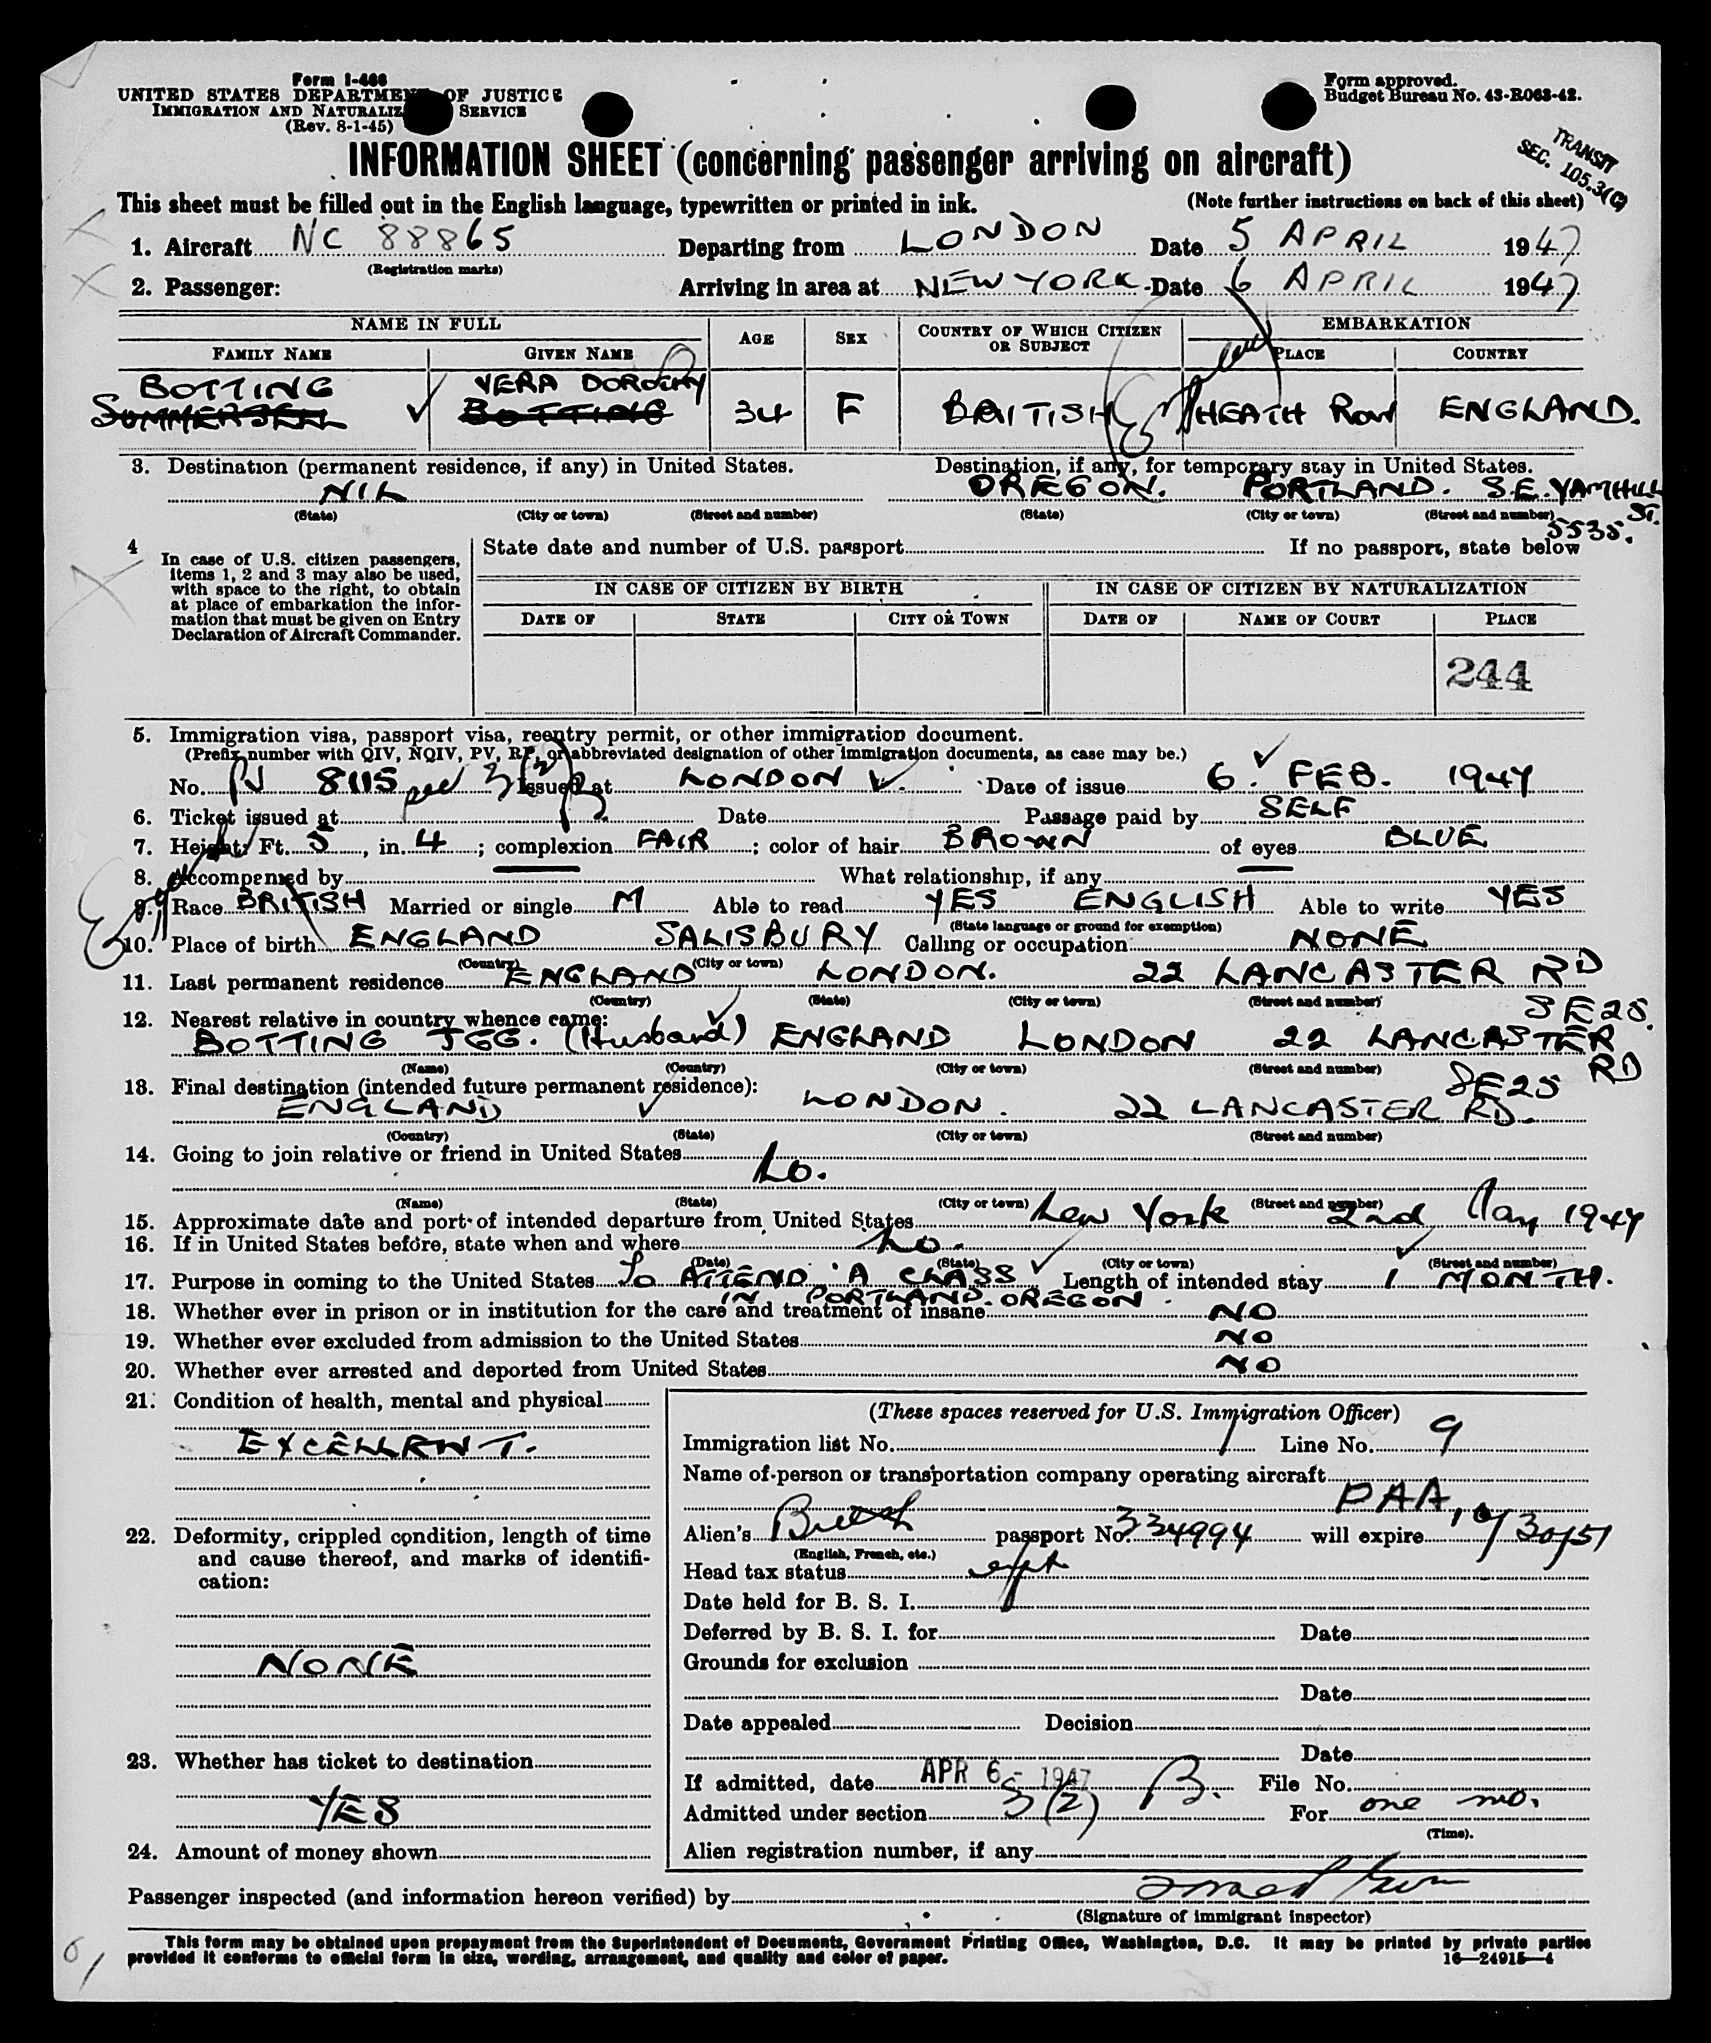 Form I-466
UNITED STATES DEPARTMENT OF JUSTICE
IMMIGRATION AND NATURALIZ SERVICE
(Rev. 8-1-45)
Form approved.
Budget Bureau No. 43-R063-42.
INFORMATION SHEET (concerning passenger arriving on aircraft)
TRANSIT
SEC. 105.3(G)
This sheet must be filled out in the English language, typewritten or printed in ink. (Note further instructions on back of this sheet)
1. Aircraft NC 88865 Departing from LONDON Date 5 APRIL 1947
(Registration marks)
2. Passenger: Arriving in area at NEW YORK Date 6 APRIL 1947
NAME IN FULL AGE SEX COUNTRY OF WHICH CITIZEN OR SUBJECT EMBARKATION
FAMILY NAME GIVEN NAME PLACE COUNTRY
BOTTING VERA DOROTHY
BOTTING 34 F BRITISH HEATH ROW ENGLAND.
3. Destination (permanent residence, if any) in United States. Destination, if any, for temporary stay in United States.
NIL OREGON. PORTLAND. S.E. YAMHILL ST.
(State) (City or town) (Street and number) (State) (City or town) (Street and number) 5535.
4 In case of U.S. citizen passengers, items 1, 2 and 3 may also be used, with space to the right, to obtain at place of embarkation the information that must be given on Entry Declaration of Aircraft Commander.
State date and number of U.S. passport If no passport, state below
IN CASE OF CITIZEN BY BIRTH IN CASE OF CITIZEN BY NATURALIZATION
DATE OF STATE CITY OR TOWN DATE OF NAME OF COURT PLACE
244
5. Immigration visa, passport visa, reentry permit, or other immigration document.
(Prefix number with QIV, NQIV, PV, RP, or abbreviated designation of other immigration documents, as case may be.)
No. PV 8115 sec 3(2) Issued at LONDON Date of issue 6. FEB. 1947
6. Ticket issued at Date Passage paid by SELF
7. Height: Ft. 5, in. 4; complexion FAIR; color of hair BROWN of eyes BLUE
8. Accompanied by What relationship, if any
9. Race BRITISH Married or single M Able to read YES ENGLISH Able to write YES
(State language or ground for exemption)
10. Place of birth ENGLAND SALISBURY Calling or occupation NONE
(Country) (City or town)
11. Last permanent residence ENGLAND LONDON. 22 LANCASTER RD
(Country) (State) (City or town) (Street and number) SE25.
12. Nearest relative in country whence came:
BOTTING JGG. (Husband) ENGLAND LONDON 22 LANCASTER RD
(Name) (Country) (City or town) (Street and number) SE25
13. Final destination (intended future permanent residence):
ENGLAND LONDON. 22 LANCASTER RD.
(Country) (State) (City or town) (Street and number)
14. Going to join relative or friend in United States
No.
(Name) (State) (City or town) (Street and number)
15. Approximate date and port of intended departure from United States New York 2nd May 1947
16. If in United States before, state when and where No.
(Date) (State) (City or town) (Street and number)
17. Purpose in coming to the United States To ATTEND A CLASS Length of intended stay 1 MONTH.
IN PORTLAND. OREGON
18. Whether ever in prison or in institution for the care and treatment of insane NO
19. Whether ever excluded from admission to the United States NO
20. Whether ever arrested and deported from United States NO
21. Condition of health, mental and physical
EXCELLENT.
22. Deformity, crippled condition, length of time and cause thereof, and marks of identification:
NONE
23. Whether has ticket to destination
YES
24. Amount of money shown
(These spaces reserved for U.S. Immigration Officer)
Immigration list No. 1 Line No. 9
Name of person or transportation company operating aircraft
PAA
Alien's British passport No. 334994 will expire 10/30/51
(English, French, etc.)
Head tax status
Date held for B. S. I.
Deferred by B. S. I. for Date
Grounds for exclusion
Date
Date appealed Decision
Date
If admitted, date APR 6 - 1947 B. File No.
Admitted under section 3(2) For one mo.
(Time).
Alien registration number, if any
Passenger inspected (and information hereon verified) by
(Signature of immigrant inspector)
This form may be obtained upon prepayment from the Superintendent of Documents, Government Printing Office, Washington, D.C. It may be printed by private parties
provided it conforms to official form in size, wording, arrangement, and quality and color of paper. 16—24915-4